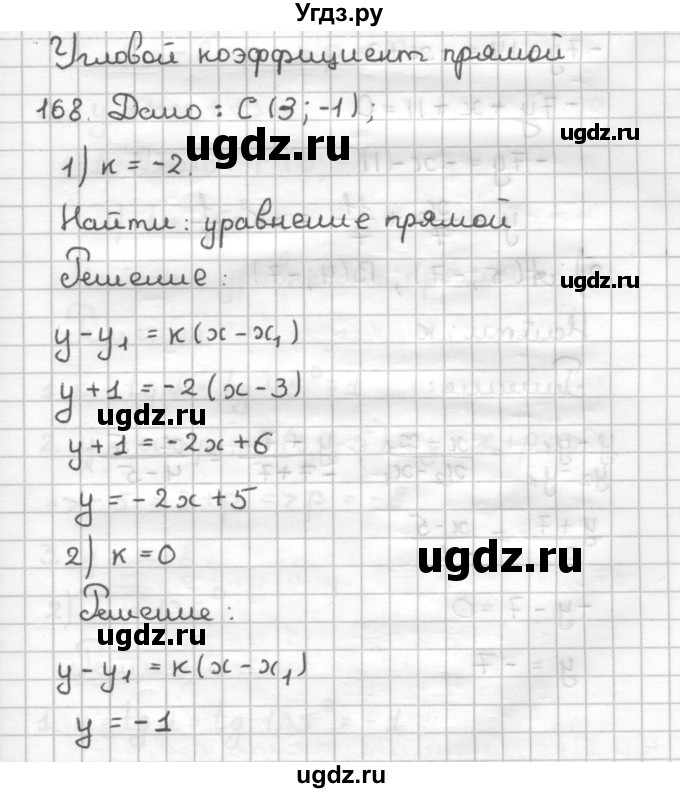 Угдз.ру
Угловой коэффициент прямой
168. Дано: C(3; -1);
ugdz.ru
1) к = -2.
Найти: уравнение прямой
Решение:
ugdz.ru
y - y₁ = к(x - x₁)
y + 1 = -2(x - 3)
ugdz.ru
y + 1 = -2x + 6
y = -2x + 5
2) к = 0
ugdz.ru
Решение:
ugdz.ru
y - y₁ = к(x - x₁)
y = -1
ugdz.ru
ugdz.ru